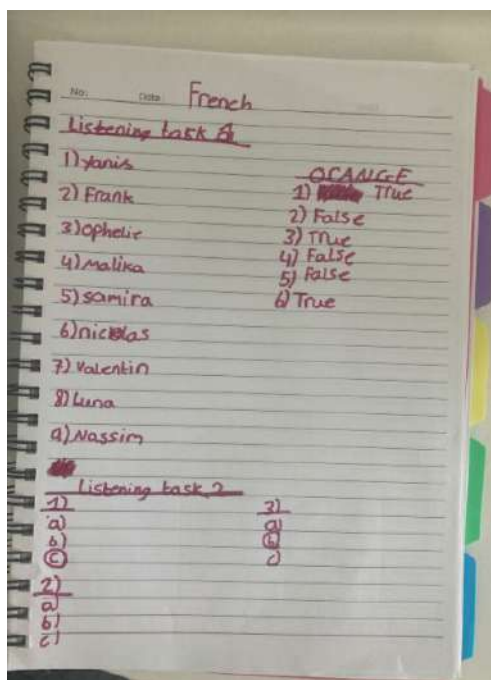 No: Date: French
Listening task 1
1) Yanis
2) Frank
3) Ophelie
4) Malika
5) Samira
6) nicolas
7) Valentin
8) Luna
a) Nassim
OCANGE
1) True
2) False
3) True
4) False
5) False
6) True
Listening task 2
1)
a)
b)
c)
2)
a)
b)
c)
3)
a)
b)
c)